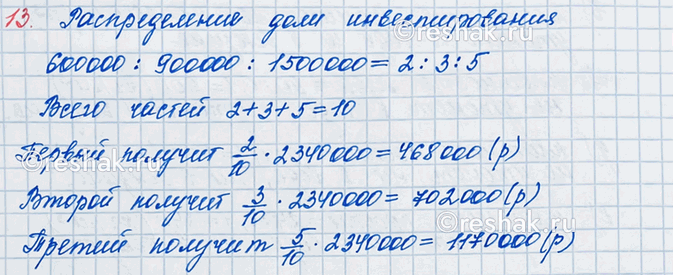 13. Распределение доли инвестирования
600000 : 900000 : 1500000 = 2 : 3 : 5
Всего частей 2+3+5=10
Первый получит 2/10 · 2340000 = 468000 (р)
Второй получит 3/10 · 2340000 = 702000 (р)
Третий получит 5/10 · 2340000 = 1170000 (р)
©reshak.ru